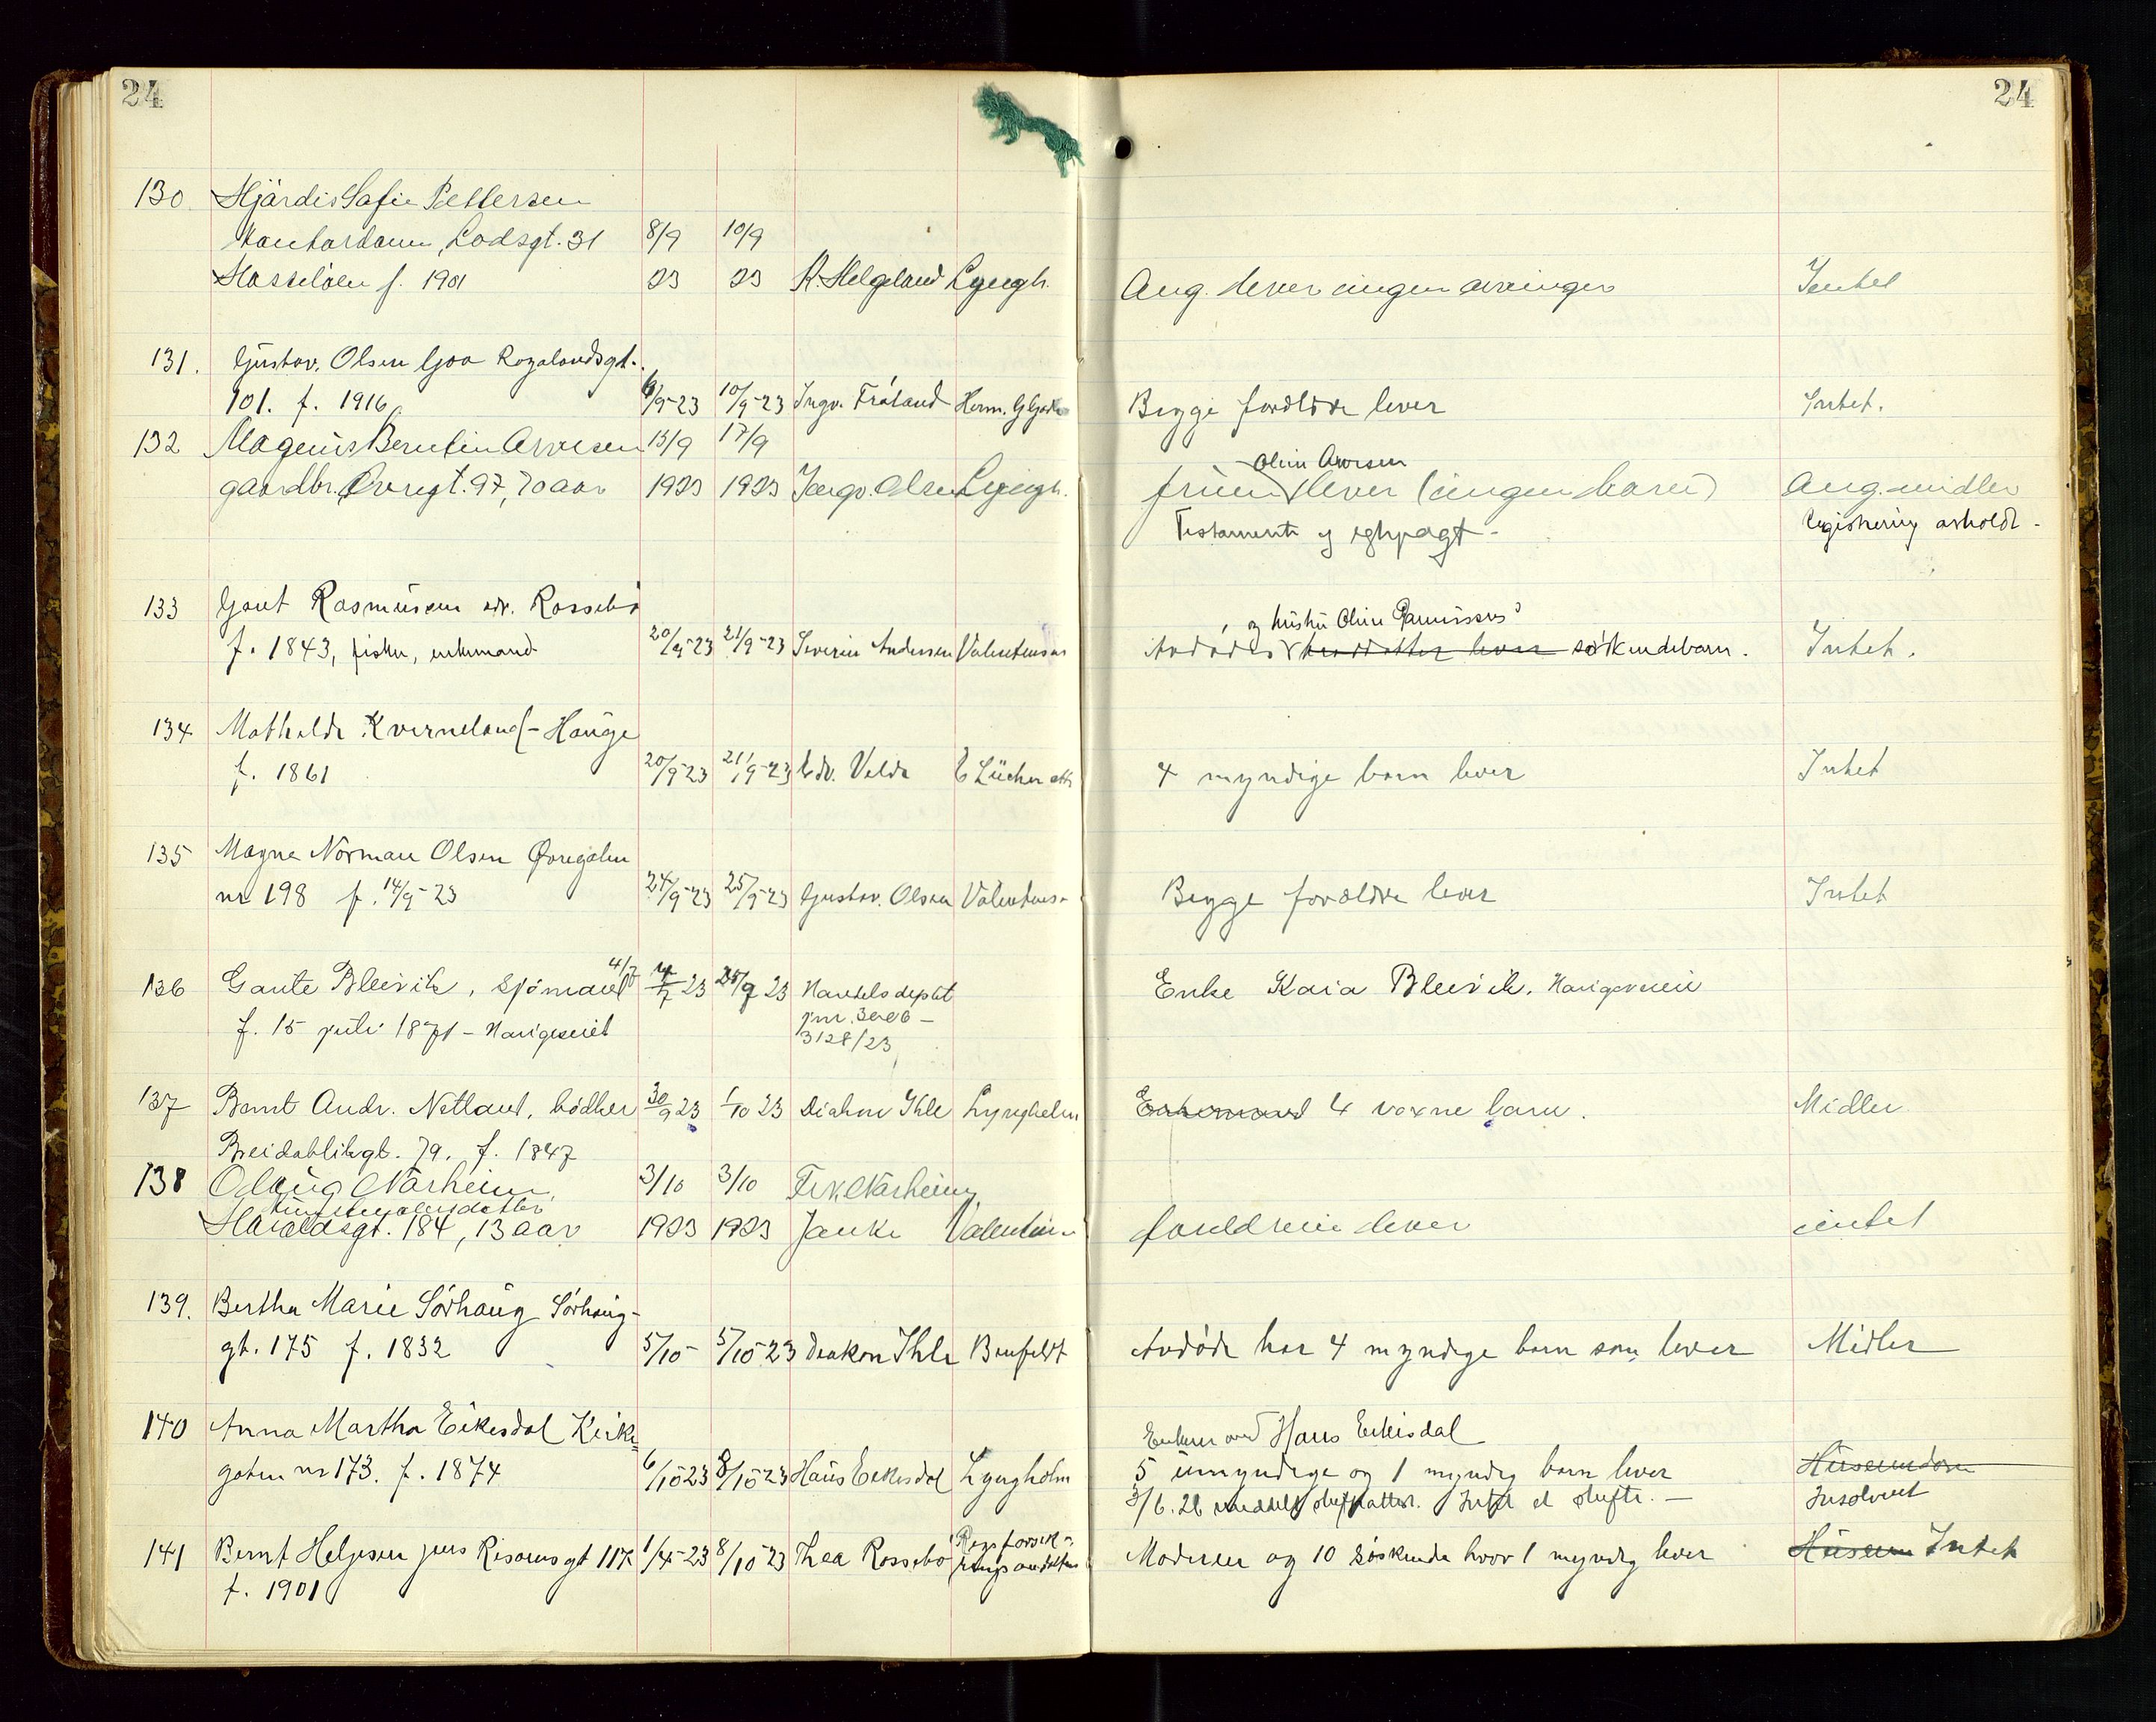 24
24
130. Hjørdis Sofie Pettersen
Kontordame, Lodsgt. 31 8/9 10/9
Hasseløen f. 1901 23 23 K. Helgeland Lyngh. Ang. lever ingen arvinger Intet
131. Gustav. Olsen Goa Rogalandsgt.
101. f. 1916 6/9-23 10/9-23 Ingv. Fråland Herm. Begge forældre lever Intet.
132 Magnus Berntin Arvesen 15/9 17/9
Oline Arvesen
gaardbr. Øvregt. 97, 70 aar 1923 1923 Ingv. Olsen Lyngh. fruen lever (ingen barn) Ang. midler
Testamente og egtepagt - registrering avholdt -
133 Gaut Rasmussen Rossebø
og hustru Oline
f. 1843, fisker, enkemand 20/9-23 21/9-23 Severin Andersen Valentinsen Avdødes broddatter lever søskendebarn. Intet.
134 Mathilde Kverneland-Hauge
f. 1861 20/9-23 21/9-23 Edv. Velde E Lücken 4 myndige barn lever Intet
135 Magne Norman Olsen Øvregaten
nr 198 f. 14/9-23 24/9-23 25/9-23 Gustav. Olsen Valentins- Begge forældre lever Intet
136 Gaute Bleivik, sjömand 4/7 4/7 23 25/9 23 Handels deptet Enke Kaia Bleivik. Haugeveien
f. 15 juli 1871 - Haugeveiet jnr. 3006 -
3128/23
137 Bernt Andr. Netland, bødker 30/9 23 1/10 23 Diakon Ihle Lyngholm Enkemand 4 voxne barn. Midler
Breidablikgt. 79. f. 1847
138 Olaug Nærheim, 3/10 3/10 Frk. Nærheim,
Haraldsgt. 184, 13 aar 1923 1923 Janke Valentin- foreldrene lever intet
139. Bertha Marie Sørhaug Sørhaug-
gt. 175 f. 1832 5/10- 5/10-23 Diakon Ihle Banfeldt Avdøde har 4 myndige barn som lever Midler
140 Anna Martha Eikesdal Kirke=
Enkemand Hans Eikesdal
gaten nr 173. f. 1874 6/10-23 8/10-23 Hans Eikesdal Lyngholm 5 umyndige og 1 myndig barn lever Huseiendom
3/6. 26 meddelt skifteattest. Intet at skifte. - Insolvent
141 Bernt Helgesen jun Risøensgt 117 1/4-23 8/10-23 Thea Rossebø Rigsforsik- Moderen og 10 søskende hvor 1 myndig lever Huseien Intet
f. 1901 ringsanstalten